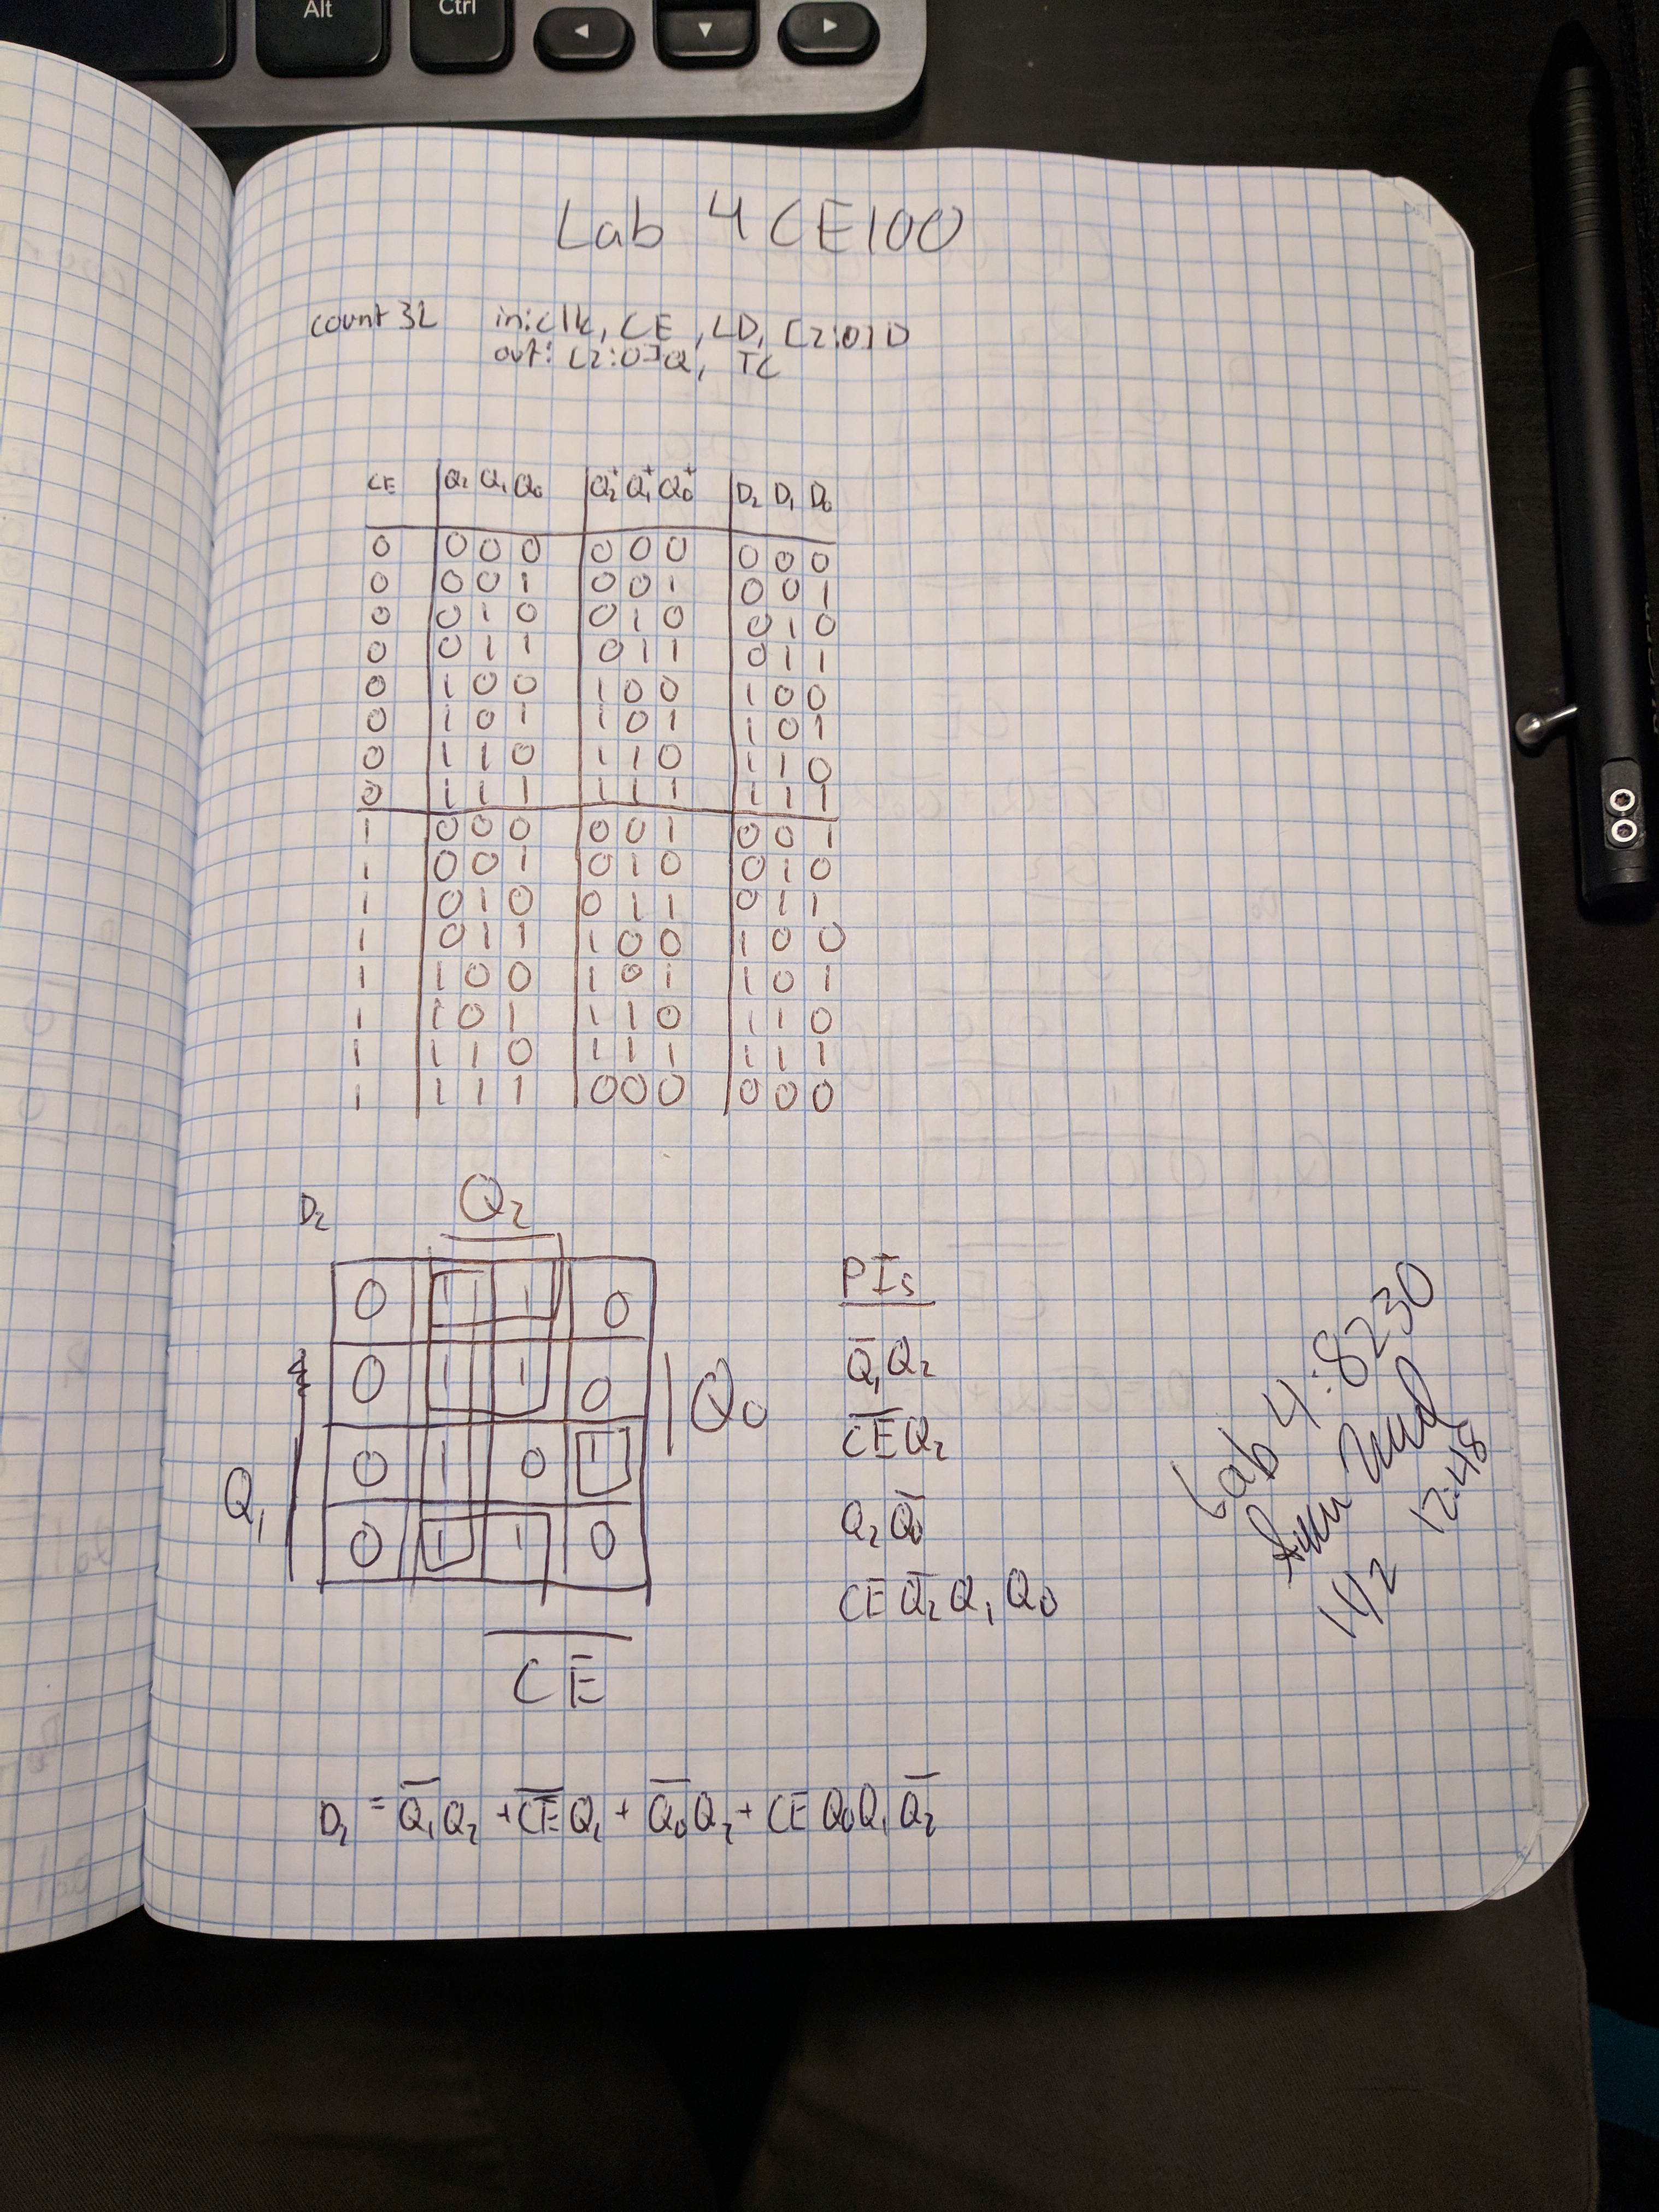 Alt Ctrl ◄ ▼ ►
Lab 4 CE100
count3L in: clk, CE, LD, [2:0] D
out: [2:0] Q, TC
CE Q₂ Q₁ Q₀ Q₂⁺ Q₁⁺ Q₀⁺ D₂ D₁ D₀
0 0 0 0 0 0 0 0 0 0
0 0 0 1 0 0 1 0 0 1
0 0 1 0 0 1 0 0 1 0
0 0 1 1 0 1 1 0 1 1
0 1 0 0 1 0 0 1 0 0
0 1 0 1 1 0 1 1 0 1
0 1 1 0 1 1 0 1 1 0
0 1 1 1 1 1 1 1 1 1
1 0 0 0 0 0 1 0 0 1
1 0 0 1 0 1 0 0 1 0
1 0 1 0 0 1 1 0 1 1
1 0 1 1 1 0 0 1 0 0
1 1 0 0 1 0 1 1 0 1
1 1 0 1 1 1 0 1 1 0
1 1 1 0 1 1 1 1 1 1
1 1 1 1 0 0 0 0 0 0
D₂ Q₂
0 1 1 0
0 1 1 0
0 1 0 1
0 1 1 0
Q₁
Q₀
CE
PIs
Q̅₁Q₂
C̅E̅Q₂
Q₂Q̅₀
CE Q̅₂ Q₁ Q₀
D₂ = Q̅₁Q₂ + C̅E̅Q₂ + Q̅₀Q₂ + CE Q₀Q₁Q̅₂
Lab 4: 8230
1/2 12:48